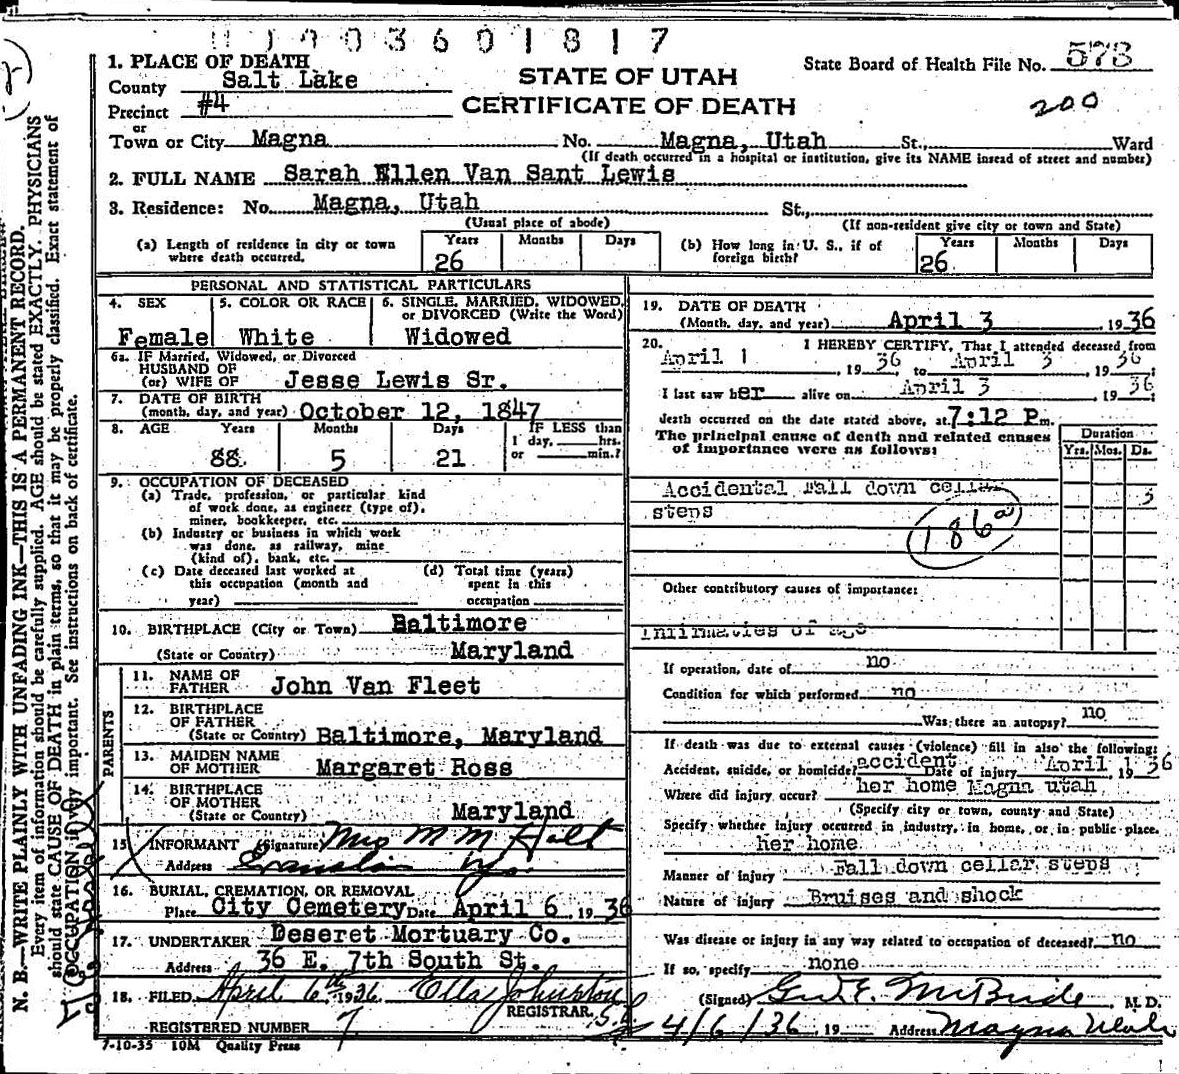 003601817
1. PLACE OF DEATH
STATE OF UTAH
CERTIFICATE OF DEATH
State Board of Health File No. 573
200
County Salt Lake
Precinct #4
or
Town or City Magna No. Magna, Utah St., Ward
(If death occurred in a hospital or institution, give its NAME instead of street and number)
2. FULL NAME Sarah Ellen Van Sant Lewis
3. Residence: No. Magna, Utah St.,
(Usual place of abode) (If non-resident give city or town and State)
(a) Length of residence in city or town where death occurred. Years 26 Months Days
(b) How long in U. S., if of foreign birth? Years 26 Months Days
PERSONAL AND STATISTICAL PARTICULARS
4. SEX Female
5. COLOR OR RACE White
6. SINGLE, MARRIED, WIDOWED, or DIVORCED (Write the Word) Widowed
6a. IF Married, Widowed, or Divorced
HUSBAND OF
(or) WIFE OF Jesse Lewis Sr.
7. DATE OF BIRTH
(month, day, and year) October 12, 1847
8. AGE Years 88 Months 5 Days 21 IF LESS than 1 day, hrs. or min.?
9. OCCUPATION OF DECEASED
(a) Trade, profession, or particular kind
of work done, as engineer (type of),
miner, bookkeeper, etc.
(b) Industry or business in which work
was done, as railway, mine
(kind of), bank, etc.
(c) Date deceased last worked at
this occupation (month and
year)
(d) Total time (years)
spent in this
occupation
10. BIRTHPLACE (City or Town) Baltimore
(State or Country) Maryland
PARENTS
11. NAME OF
FATHER John Van Fleet
12. BIRTHPLACE
OF FATHER
(State or Country) Baltimore, Maryland
13. MAIDEN NAME
OF MOTHER Margaret Ross
14. BIRTHPLACE
OF MOTHER
(State or Country) Maryland
15. INFORMANT (Signature) Mrs M M Holt
Address Wyo.
16. BURIAL, CREMATION, OR REMOVAL
Place City Cemetery Date April 6 1936
17. UNDERTAKER Deseret Mortuary Co.
Address 36 E. 7th South St.
18. FILED April 6th 1936 Ella Johnston
REGISTRAR.
REGISTERED NUMBER 7
7-10-35 10M Quality Press
19. DATE OF DEATH
(Month, day, and year) April 3 1936
20. I HEREBY CERTIFY, That I attended deceased from
April 1, 1936 to April 3 1936;
I last saw her alive on April 3, 1936;
death occurred on the date stated above, at 7:12 P m.
The principal cause of death and related causes
of importance were as follows:
Duration
Yrs. Mos. Ds.
Accidental Fall down cellar 3
steps
186a
Other contributory causes of importance:
Infirmaties of age
If operation, date of no
Condition for which performed no
Was there an autopsy? no
If death was due to external causes (violence) fill in also the following:
Accident, suicide, or homicide? accident Date of injury April 1 1936
Where did injury occur? her home Magna utah
(Specify city or town, county and State)
Specify whether injury occurred in industry, in home, or in public place.
her home
Manner of injury Fall down cellar steps
Nature of injury Bruises and shock
Was disease or injury in any way related to occupation of deceased? no
If so, specify none
(Signed) McBride M D.
4/6/36 19 Address Magna Utah
N. B.—WRITE PLAINLY WITH UNFADING INK—THIS IS A PERMANENT RECORD.
Every item of information should be carefully supplied. AGE should be stated EXACTLY. PHYSICIANS
should state CAUSE OF DEATH in plain terms, so that it may be properly classified. Exact statement of
OCCUPATION is very important. See instructions on back of certificate.